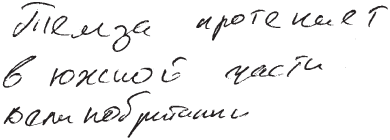 Темза протекает
в южной части
великобритании